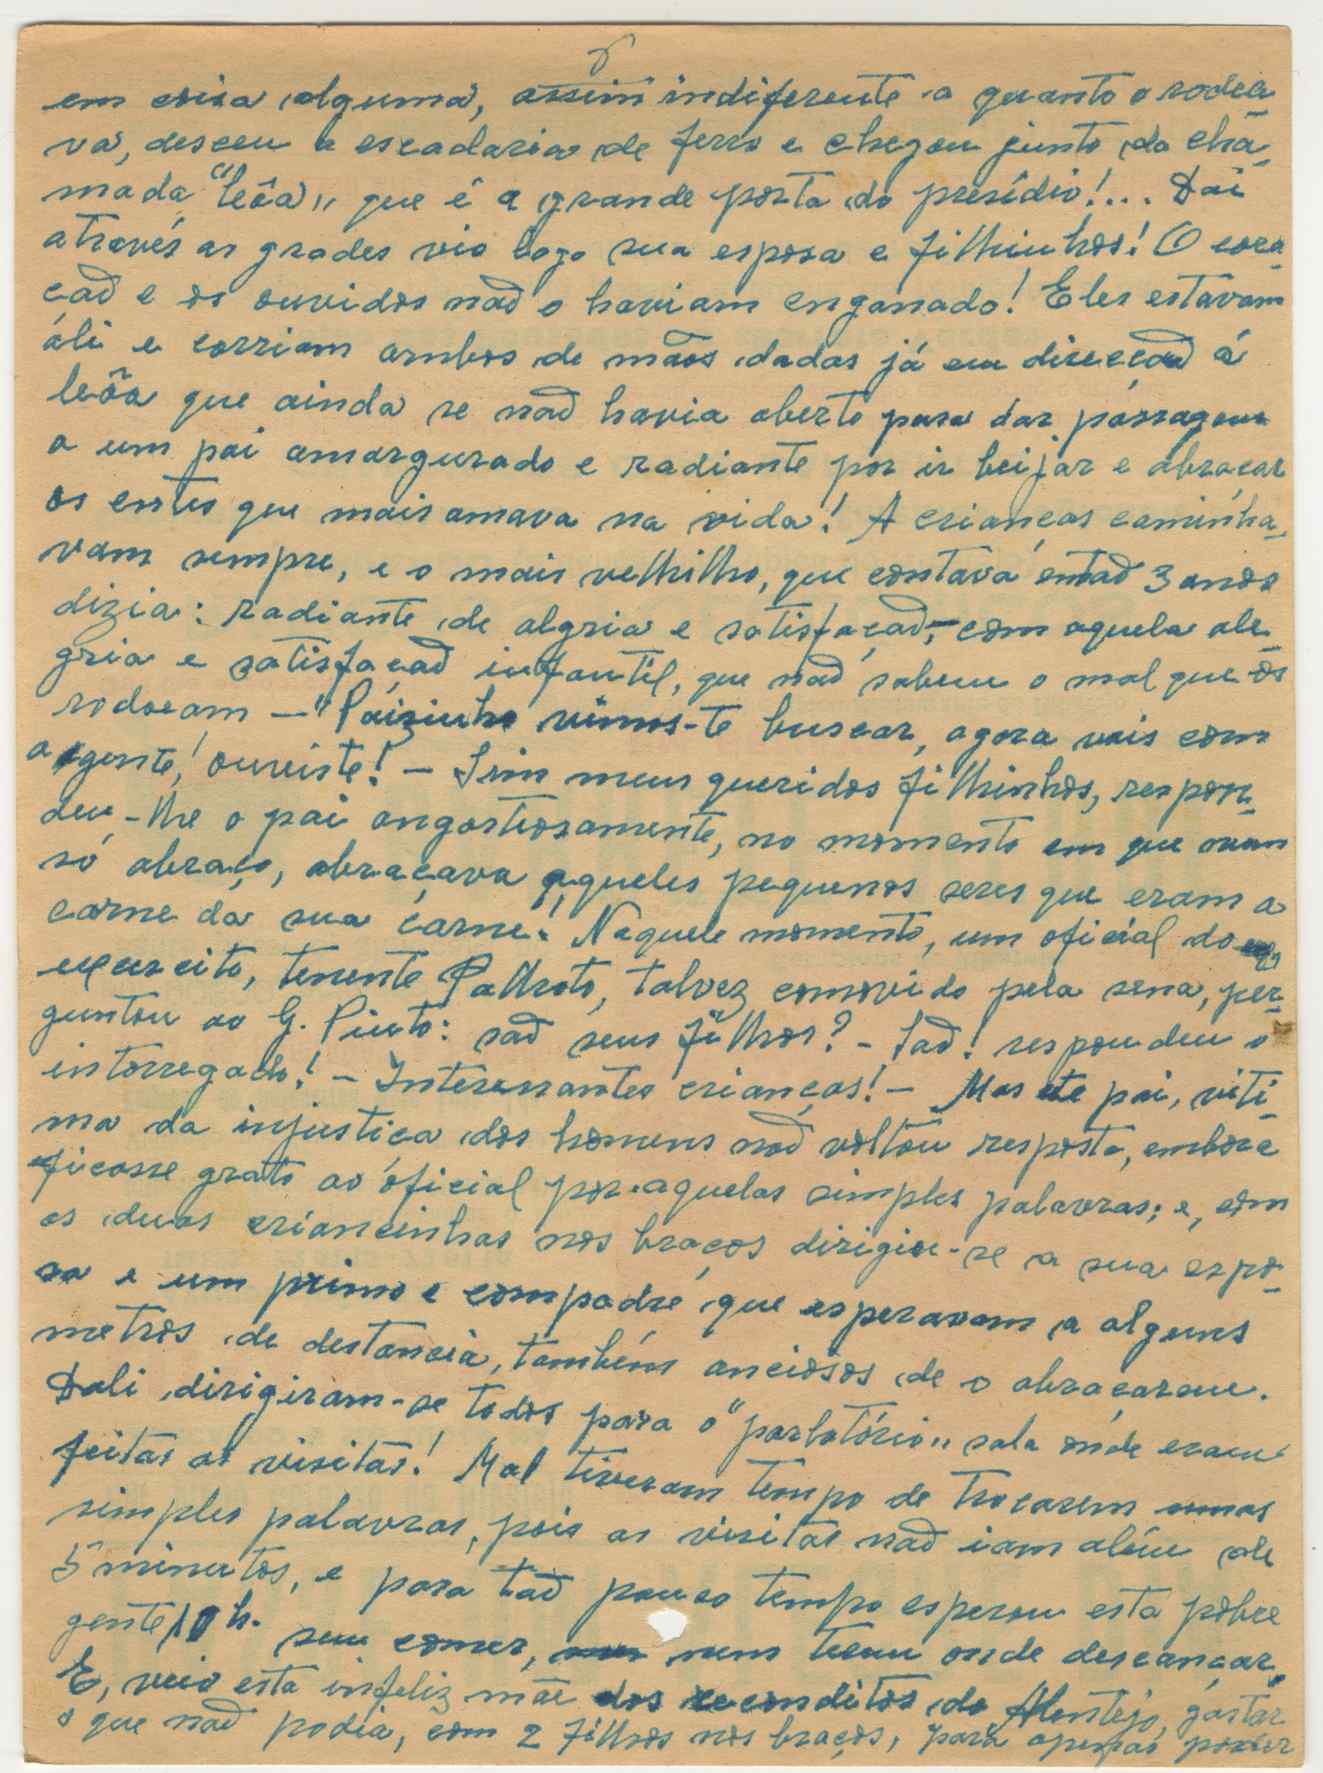 em coisa alguma, assim indiferente a quanto o rodea
va, desceu a escadaria de ferro e chegou junto da cha-
mada "leôa" que é a grande porta do presídio!... Dai
através as grades vio logo sua esposa e filhinhos! O cora-
çaõ e os ouvidos naõ o haviam enganado! Eles estavam
áli e corriam ambos de mãos dadas já em direcçaõ á
leôa que ainda se naõ havia aberto para dar passagem
a um pai amargurado e radiante por ir beijar e abraçar
os entes que mais amava na vida! A crianças caminha-
vam sempre, e o mais velhilho, que contava entaõ 3 anos
dizia: radiante de algria e satisfaçaõ, com aquela ale-
gria e satisfaçaõ infantil, que naõ sabem o mal que os
rodeam — "Paizinho vimos-te buscar, agora vais com
a gente, ouviste! — Sim meus queridos filhinhos, respon-
deu-lhe o pai angostiosamente, no momento em que num
só abraço, abraçava aqueles pequenos seres que eram a
carne da sua carne! Naquele momento, um oficial do
exercito, tenente Palhoto, talvez comovido pela sena, per-
guntou ao G. Pinto: saõ seus filhos? — Saõ! respondeu o
intorregado! — Interessantes crianças! — Mas este pai, viti-
ma da injustiça dos homens naõ voltou resposta, embora
ficasse grato ao óficial por aquelas simples palavras; e, com
as duas criancinhas nos braços dirigiu-se a sua espo-
sa e um primo e compadre que esperavam a alguns
metros de destancia, também anciosos de o abraçarem.
Dali dirigiram-se todos para o "parlatório" sala onde eram
feitas as visitas! Mal tiveram tempo de trocarem umas
simples palavras, pois as visitas naõ iam além de
5 minutos, e para taõ pouco tempo esperou esta pobre
gente 10 h. sem comer, nem terem onde descançar.
E, veio esta infeliz mãe dos reconditos do Alentejo, gastar
o que naõ podia, com 2 filhos nos braços, para apenas poder